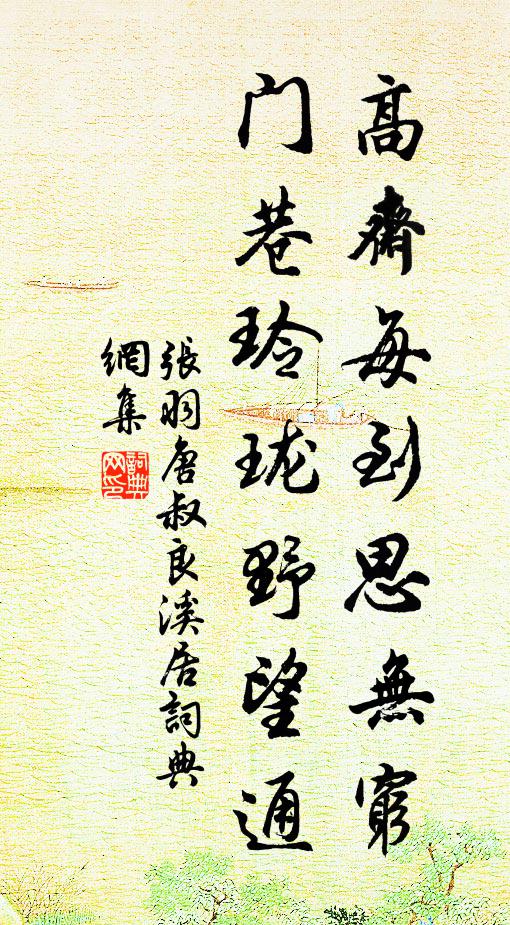 高齋每到思無窮
门巷玲珑野望通
張羽唐叔良溪居詞典
網集
詞典網印